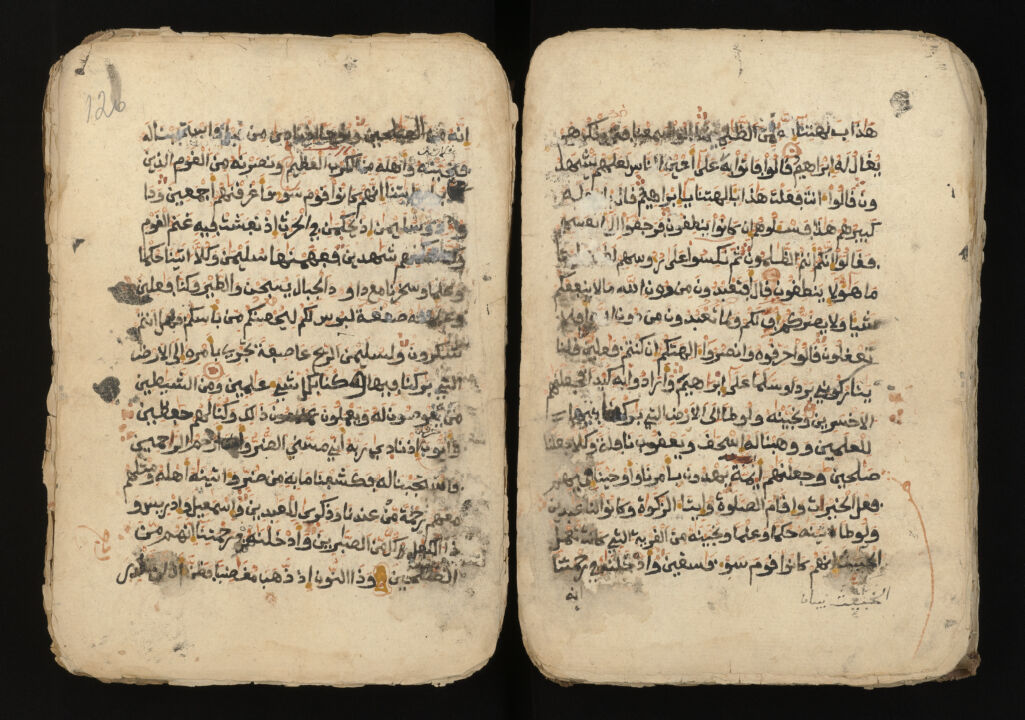 هذا بالهتنا انه لمن الظلمين قالوا سمعنا فتى يذكرهم
يقال له ابراهيم قالوا فاتوا به على اعين الناس لعلهم يشهد
ون قالوا انت فعلت هذا بالهتنا يابراهيم قال فعله
كبيرهم هذا فسلوهم ان كانوا ينطقون فرجعوا الى انفسهم
فقالوا انكم انتم الظلمون ثم نكسوا على روسهم
ما هؤلا ينطقون قال افتعبدون من دون الله ما لا ينفعكم
شيا ولا يضركم اف لكم ولما تعبدون من دون الله افلا
تعقلون قالوا حرقوه وانصروا الهتكم ان كنتم فعلين قلنا
ينار كوني بردا وسلما على ابراهيم وارادوا به كيدا فجعلنهم
الاخسرين ونجينه ولوطا الى الارض التي بركنا فيها
للعلمين ووهبنا له اسحق ويعقوب نافلة وكلا جعلنا
صلحين وجعلنهم ايمة يهدون بامرنا واوحينا اليهم
فعل الخيرات واقام الصلوة وايتا الزكوة وكانوا لنا عبدين
ولوطا اتينه حكما وعلما ونجينه من القرية التي كانت تعمل
الخبيث انهم كانوا قوم سو فسقين وادخلنه في رحمتنا
انه
126
انه من الصلحين ونوحا اذ نادى من قبل فاستجبنا له
فنجينه واهله من الكرب العظيم ونصرنه من القوم الذين
بايتنا انهم كانوا قوم سو فاغرقنهم اجمعين ودا
ود وسليمن اذ يحكمن في الحرث اذ نفشت فيه غنم القوم
وكنا لحكمهم شهدين ففهمنها سليمن وكلا اتينا حكما
وعلما وسخرنا مع داود الجبال يسبحن والطير وكنا فعلين
وعلمنه صنعة لبوس لكم ليحصنكم من باسكم فهل انتم
شكرون ولسليمن الريح عاصفة تجري بامره الى الارض
التي بركنا فيها وكنا بكل شي علمين ومن الشيطين
من يغوصون له ويعملون عملا دون ذلك وكنا لهم حفظين
وايوب اذ نادى ربه اني مسني الضر وانت ارحم الراحمين
فاستجبنا له فكشفنا ما به من ضر واتينه اهله ومثلهم
معهم رحمة من عندنا وذكرى للعبدين واسمعيل وادريس و
ذا الكفل كل من الصبرين وادخلنهم في رحمتنا انهم من
الصلحين وذا النون اذ ذهب مغضبا فظن ان لن نقدر